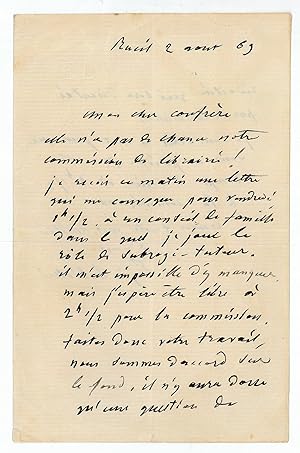 Rueil 2 aout 69
mon cher confrère
elle n'a pas de chance notre
commission de librairie !
je reçois ce matin une lettre
qui me convoque pour vendredi
1h 1/2 à un conseil de famille
dans le quel je joue le
rôle de subrogé-tuteur.
il m'est impossible d'y manquer
mais j'espère être libre à
2h 1/2 pour la commission.
faites donc votre travail,
nous sommes d'accord sur
le fond, il n'y aura donc
qu'une question de